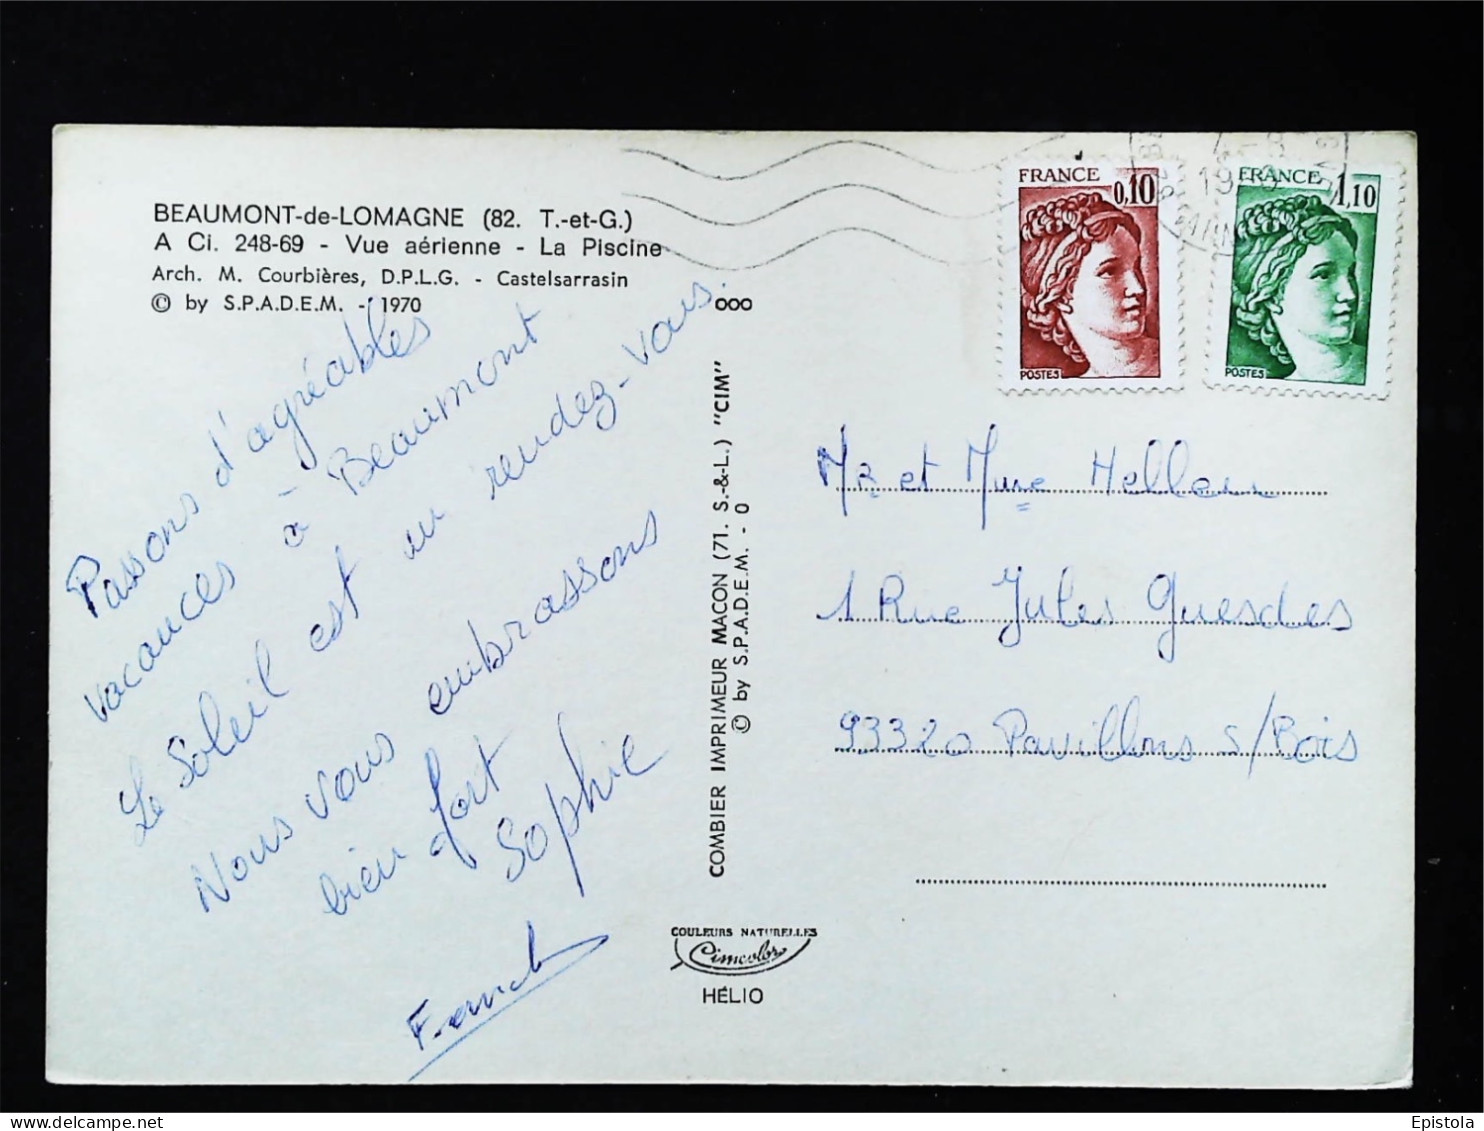 BEAUMONT-de-LOMAGNE (82. T.-et-G.)
A Ci. 248-69 - Vue aérienne - La Piscine
Arch. M. Courbières, D.P.L.G. - Castelsarrasin
© by S.P.A.D.E.M. - 1970
Passons d'agréables
vacances à Beaumont
Le Soleil est au rendez-vous.
Nous vous embrassons
bien fort
Sophie
Franck
ooo
COMBIER IMPRIMEUR MACON (71. S.-&-L.) "CIM"
© by S.P.A.D.E.M. - 0
COULEURS NATURELLES
Cimcolor
HÉLIO
FRANCE
0,10
POSTES
FRANCE
1,10
POSTES
MR et Mme Helleu
1 Rue Jules Guesdes
93320 Pavillons s/Bois
Epistola
delcampe.net